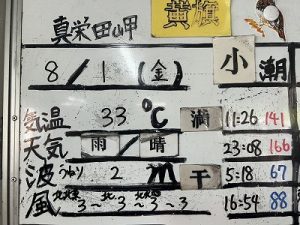 真栄田岬 黄旗
8/1(金) 小潮
気温 33℃ 満 11:26 141
天気 雨/晴 23:08 166
波 うねり 2m 干 5:18 67
風 3~北3~3~3 16:54 88